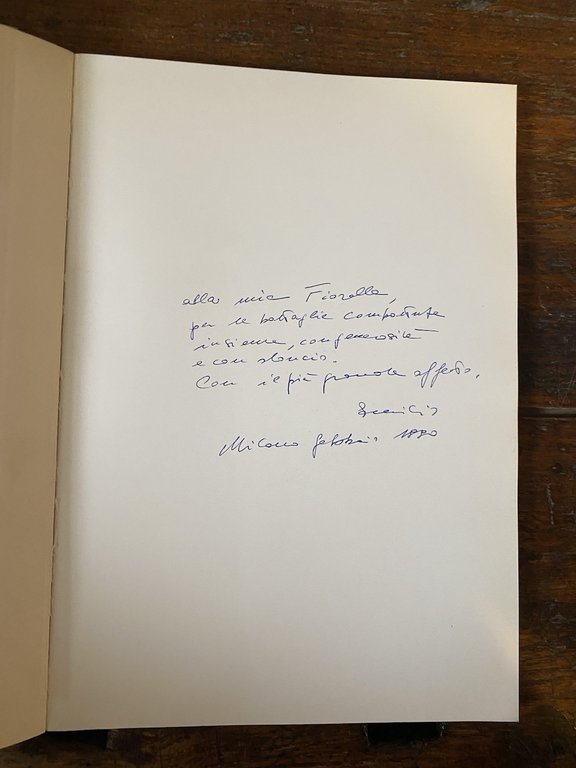 alla mia Fiorella,
per le battaglie combattute
insieme, con generosità
e con slancio.
Con il più grande affetto.
Emilio
Milano febbraio 1990